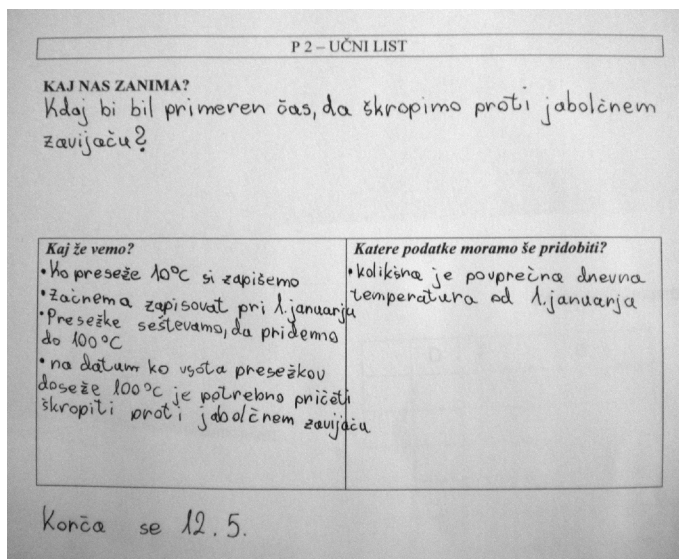 P 2 – UČNI LIST
KAJ NAS ZANIMA?
Kdaj bi bil primeren čas, da škropimo proti jabolčnem
zavijaču?
Kaj že vemo?
• Ko preseže 10°C si zapišemo
• začnema zapisovat pri 1. januarju
• Presežke seštevamo, da pridemo
do 100°C
• na datum ko vsota presežkov
doseže 100°C je potrebno pričeti
škropiti proti jabolčnem zavijaču
Katere podatke moramo še pridobiti?
• kolikšna je povprečna dnevna
temperatura od 1. januarja
Konča se 12.5.